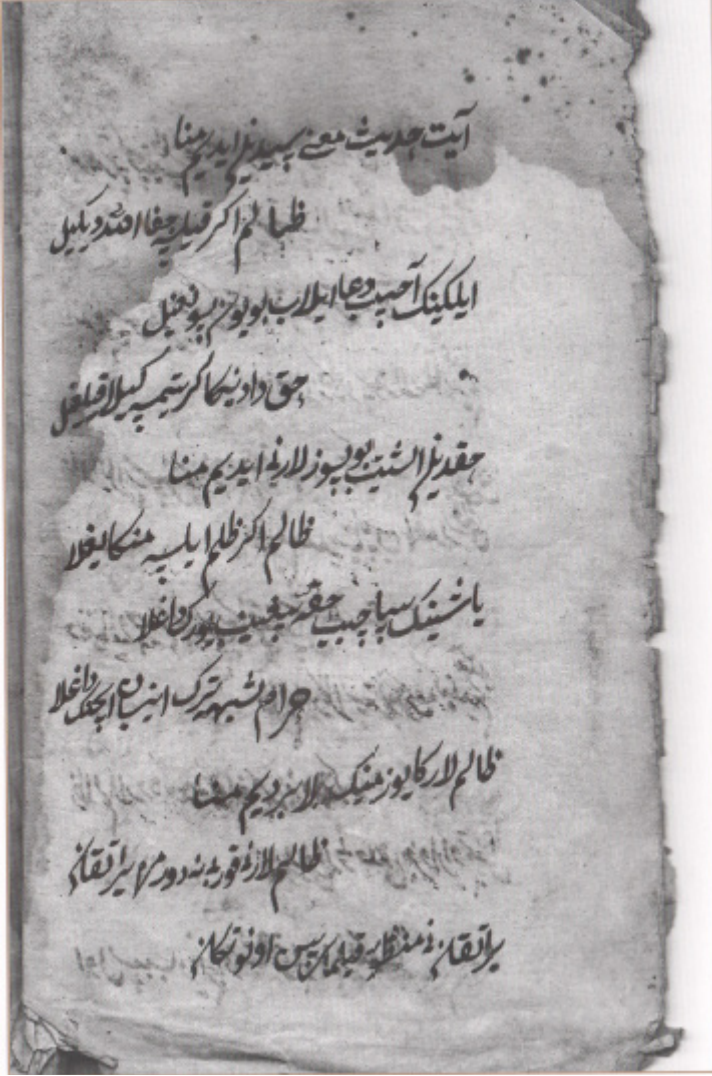 آیت حدیث معنی سیدین ایدیم منا
ظالم اکر قیلسه جفا الله دیکیل
ایلکینک آجیب دعا ایلاب بویون سونغیل
حق دادینکا اکر یتمسه کیلالار قیلغیل
حقدین ایشتیب بو سوزلارنی ایدیم منا
ظالم اکر ظلم ایلسه منکا ییغلا
یاشینک ساچیب حقه سیغینیب بورک داغلا
حرام شبهه ترک ایتیبان ایچینک داغلا
ظالم لارکا یوز مینک بلا بردیم منا
ظالم لارنی قوربه دور مو یراتقان
یراتقان نی منظور قیلماس اونوتکان